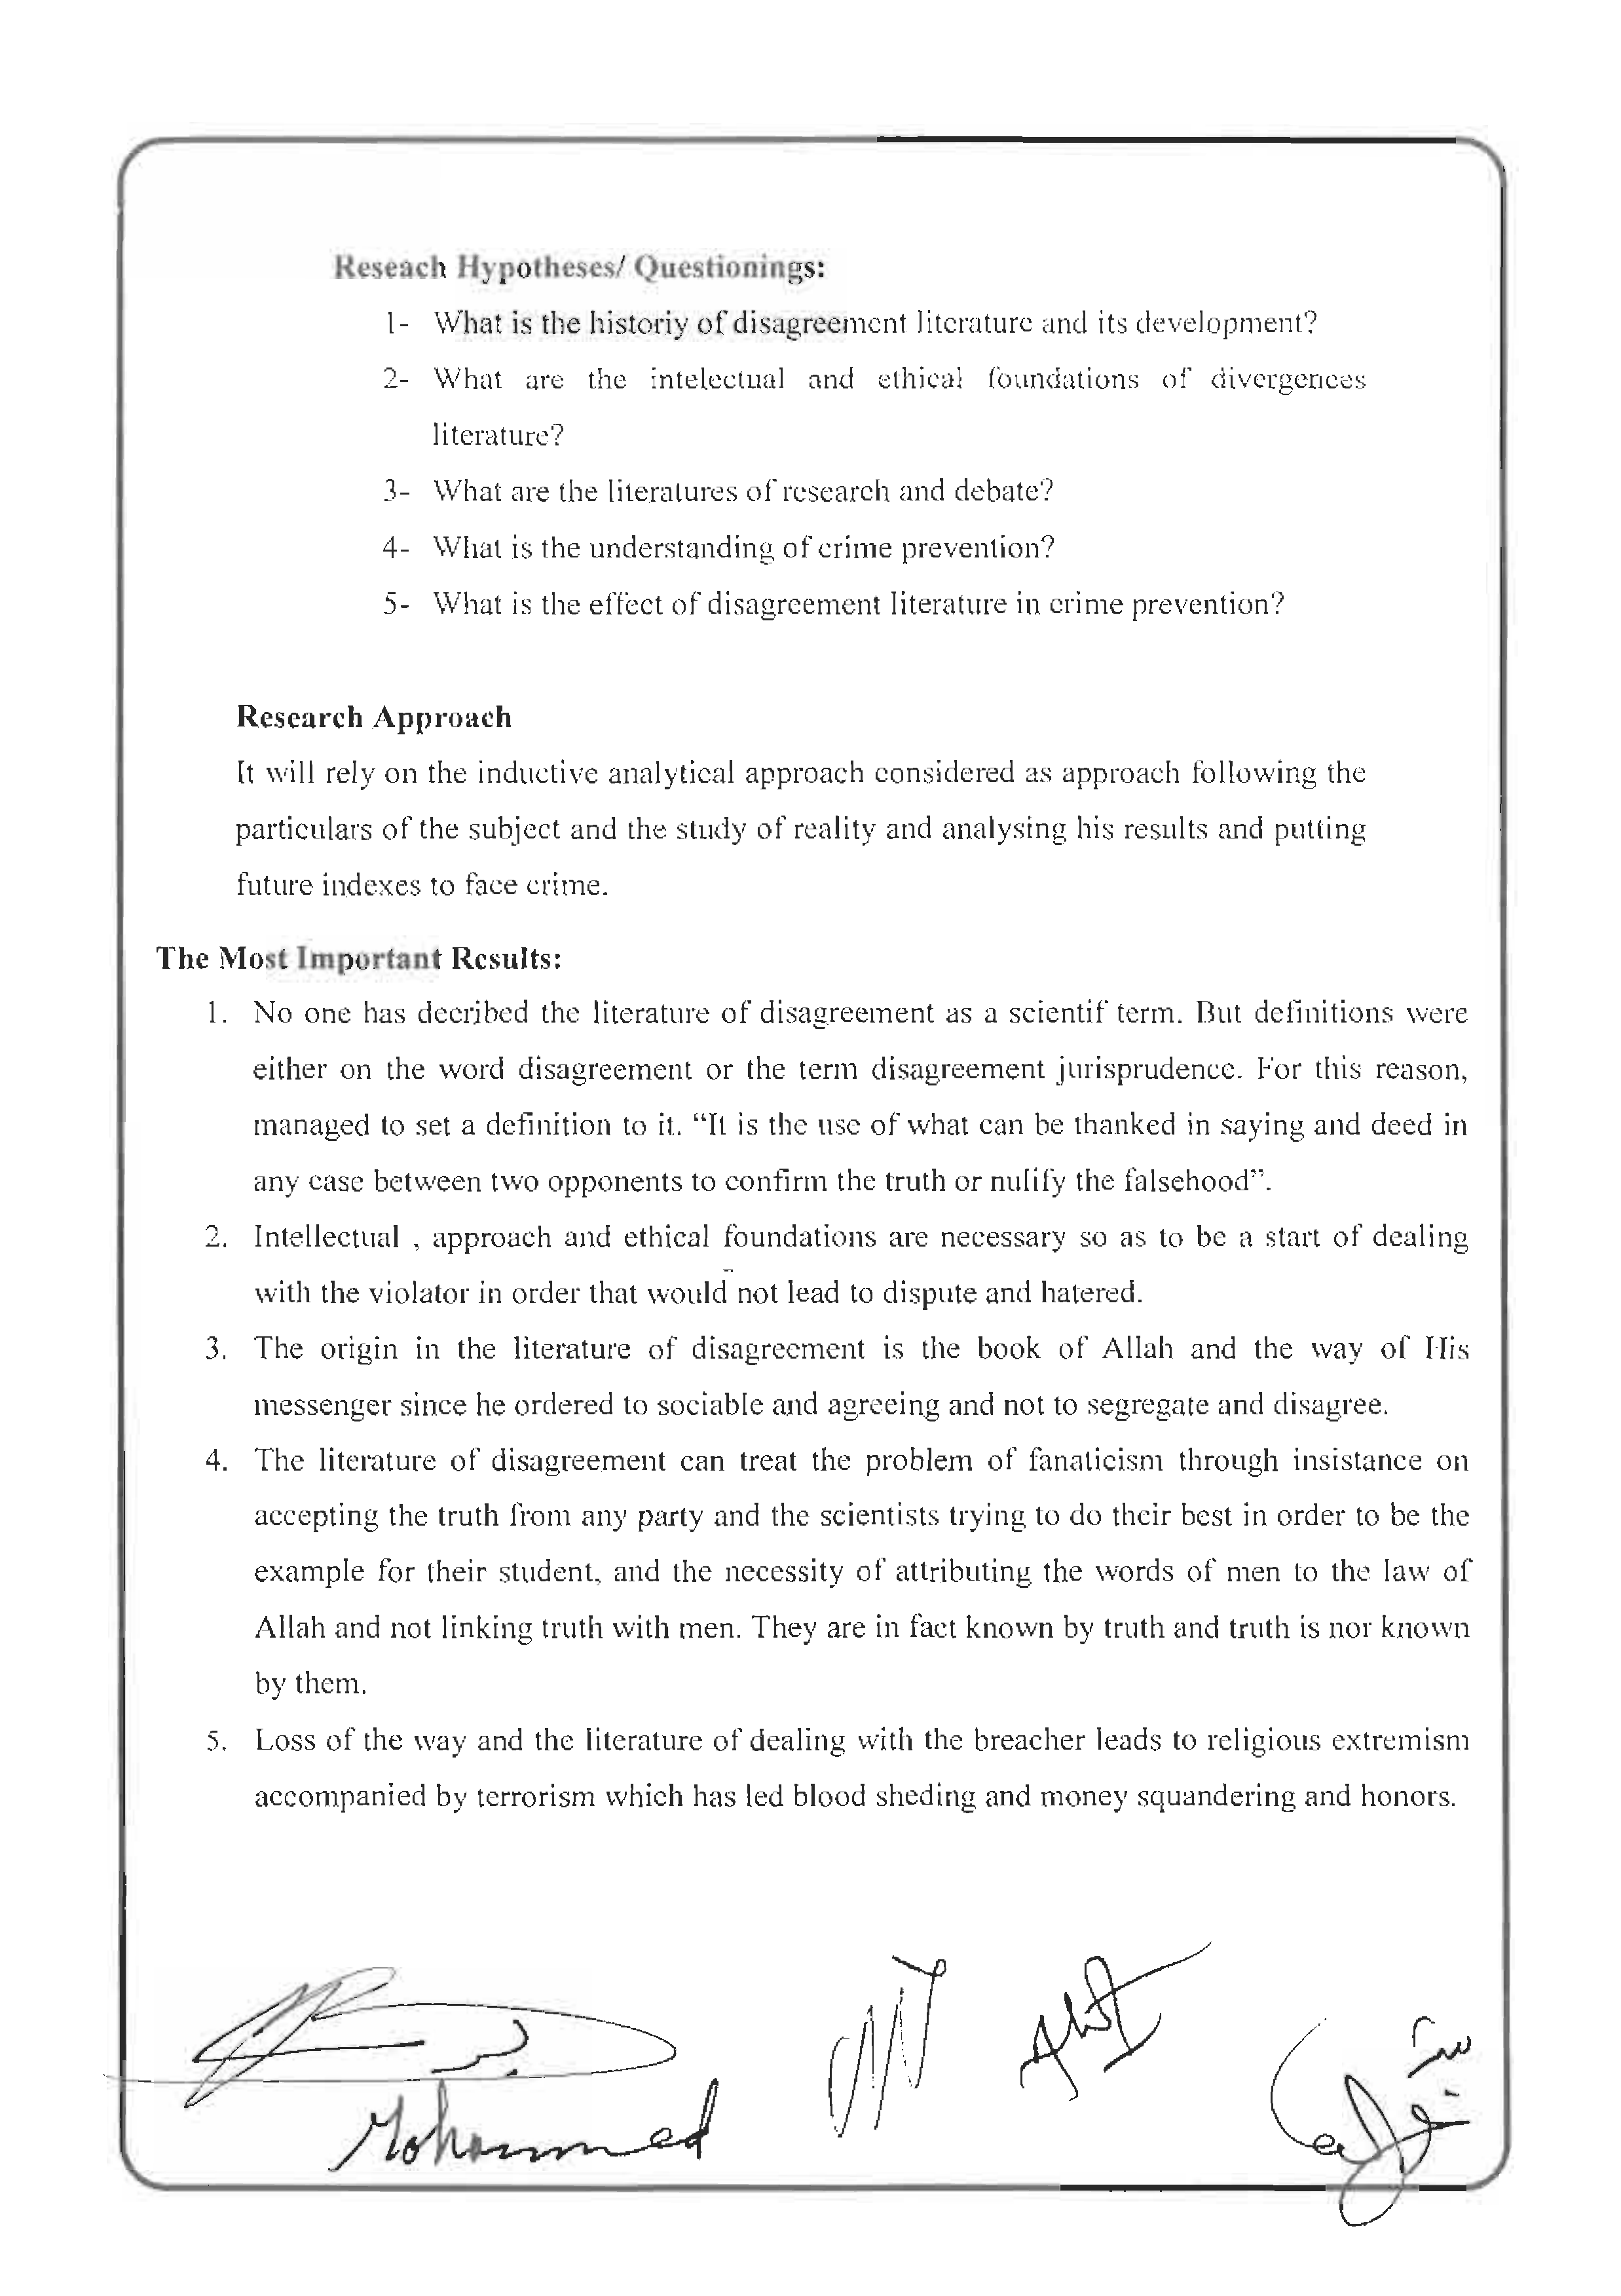 Reseach Hypotheses/ Questionings:
1- What is the historiy of disagreement literature and its development?
2- What are the intelectual and ethical foundations of divergences
literature?
3- What are the literatures of research and debate?
4- What is the understanding of crime prevention?
5- What is the effect of disagreement literature in crime prevention?
Research Approach
It will rely on the inductive analytical approach considered as approach following the
particulars of the subject and the study of reality and analysing his results and putting
future indexes to face crime.
The Most Important Results:
1. No one has decribed the literature of disagreement as a scientif term. But definitions were
either on the word disagreement or the term disagreement jurisprudence. For this reason,
managed to set a definition to it. “It is the use of what can be thanked in saying and deed in
any case between two opponents to confirm the truth or nulify the falsehood”.
2. Intellectual , approach and ethical foundations are necessary so as to be a start of dealing
with the violator in order that would not lead to dispute and hatered.
3. The origin in the literature of disagreement is the book of Allah and the way of His
messenger since he ordered to sociable and agreeing and not to segregate and disagree.
4. The literature of disagreement can treat the problem of fanaticism through insistance on
accepting the truth from any party and the scientists trying to do their best in order to be the
example for their student, and the necessity of attributing the words of men to the law of
Allah and not linking truth with men. They are in fact known by truth and truth is nor known
by them.
5. Loss of the way and the literature of dealing with the breacher leads to religious extremism
accompanied by terrorism which has led blood sheding and money squandering and honors.
Mohammed